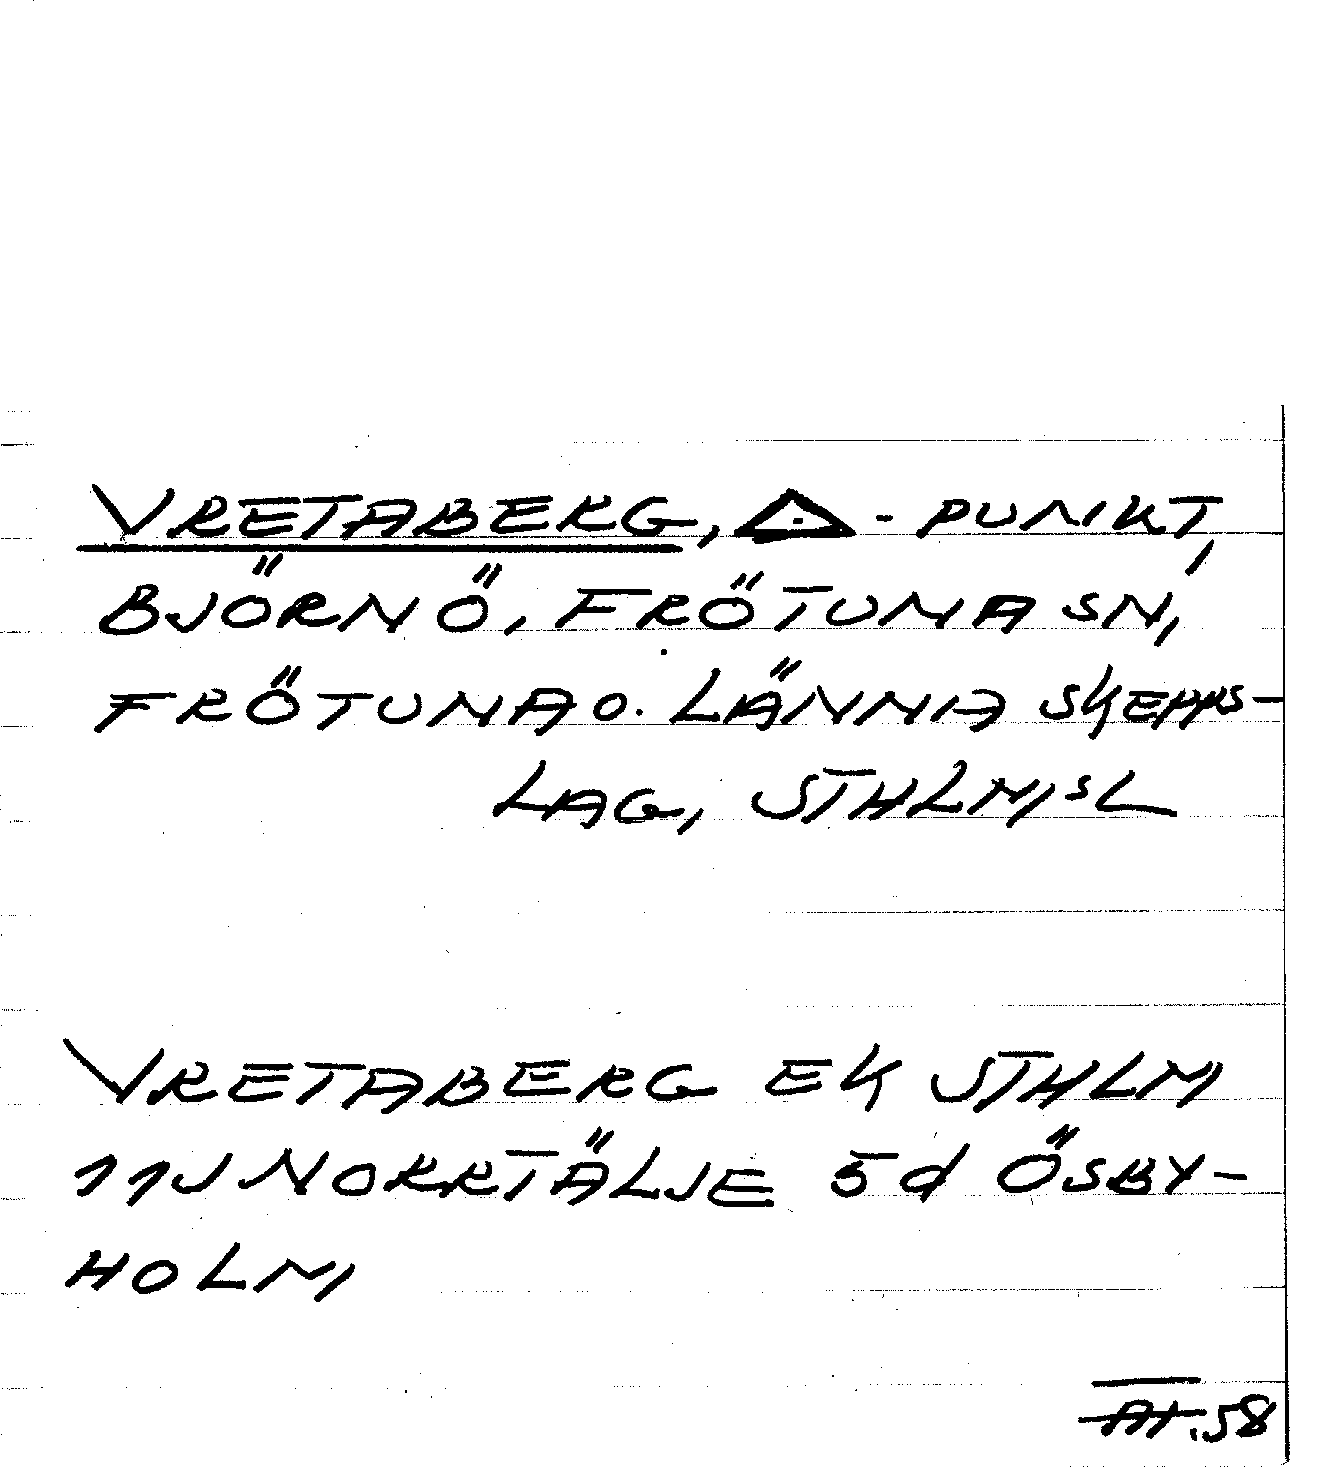 VRETABERG, △ - PUNKT,
BJÖRNÖ, FRÖTUNA SN,
FRÖTUNA O. LÄNNA SKEPPS-
LAG, STHLMSL
VRETABERG EK STHLM
11J NORRTÄLJE 5d ÖSBY-
HOLM
.58